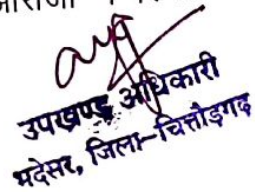 उपखण्ड अधिकारी
भदेसर, जिला-चित्तौड़गढ़